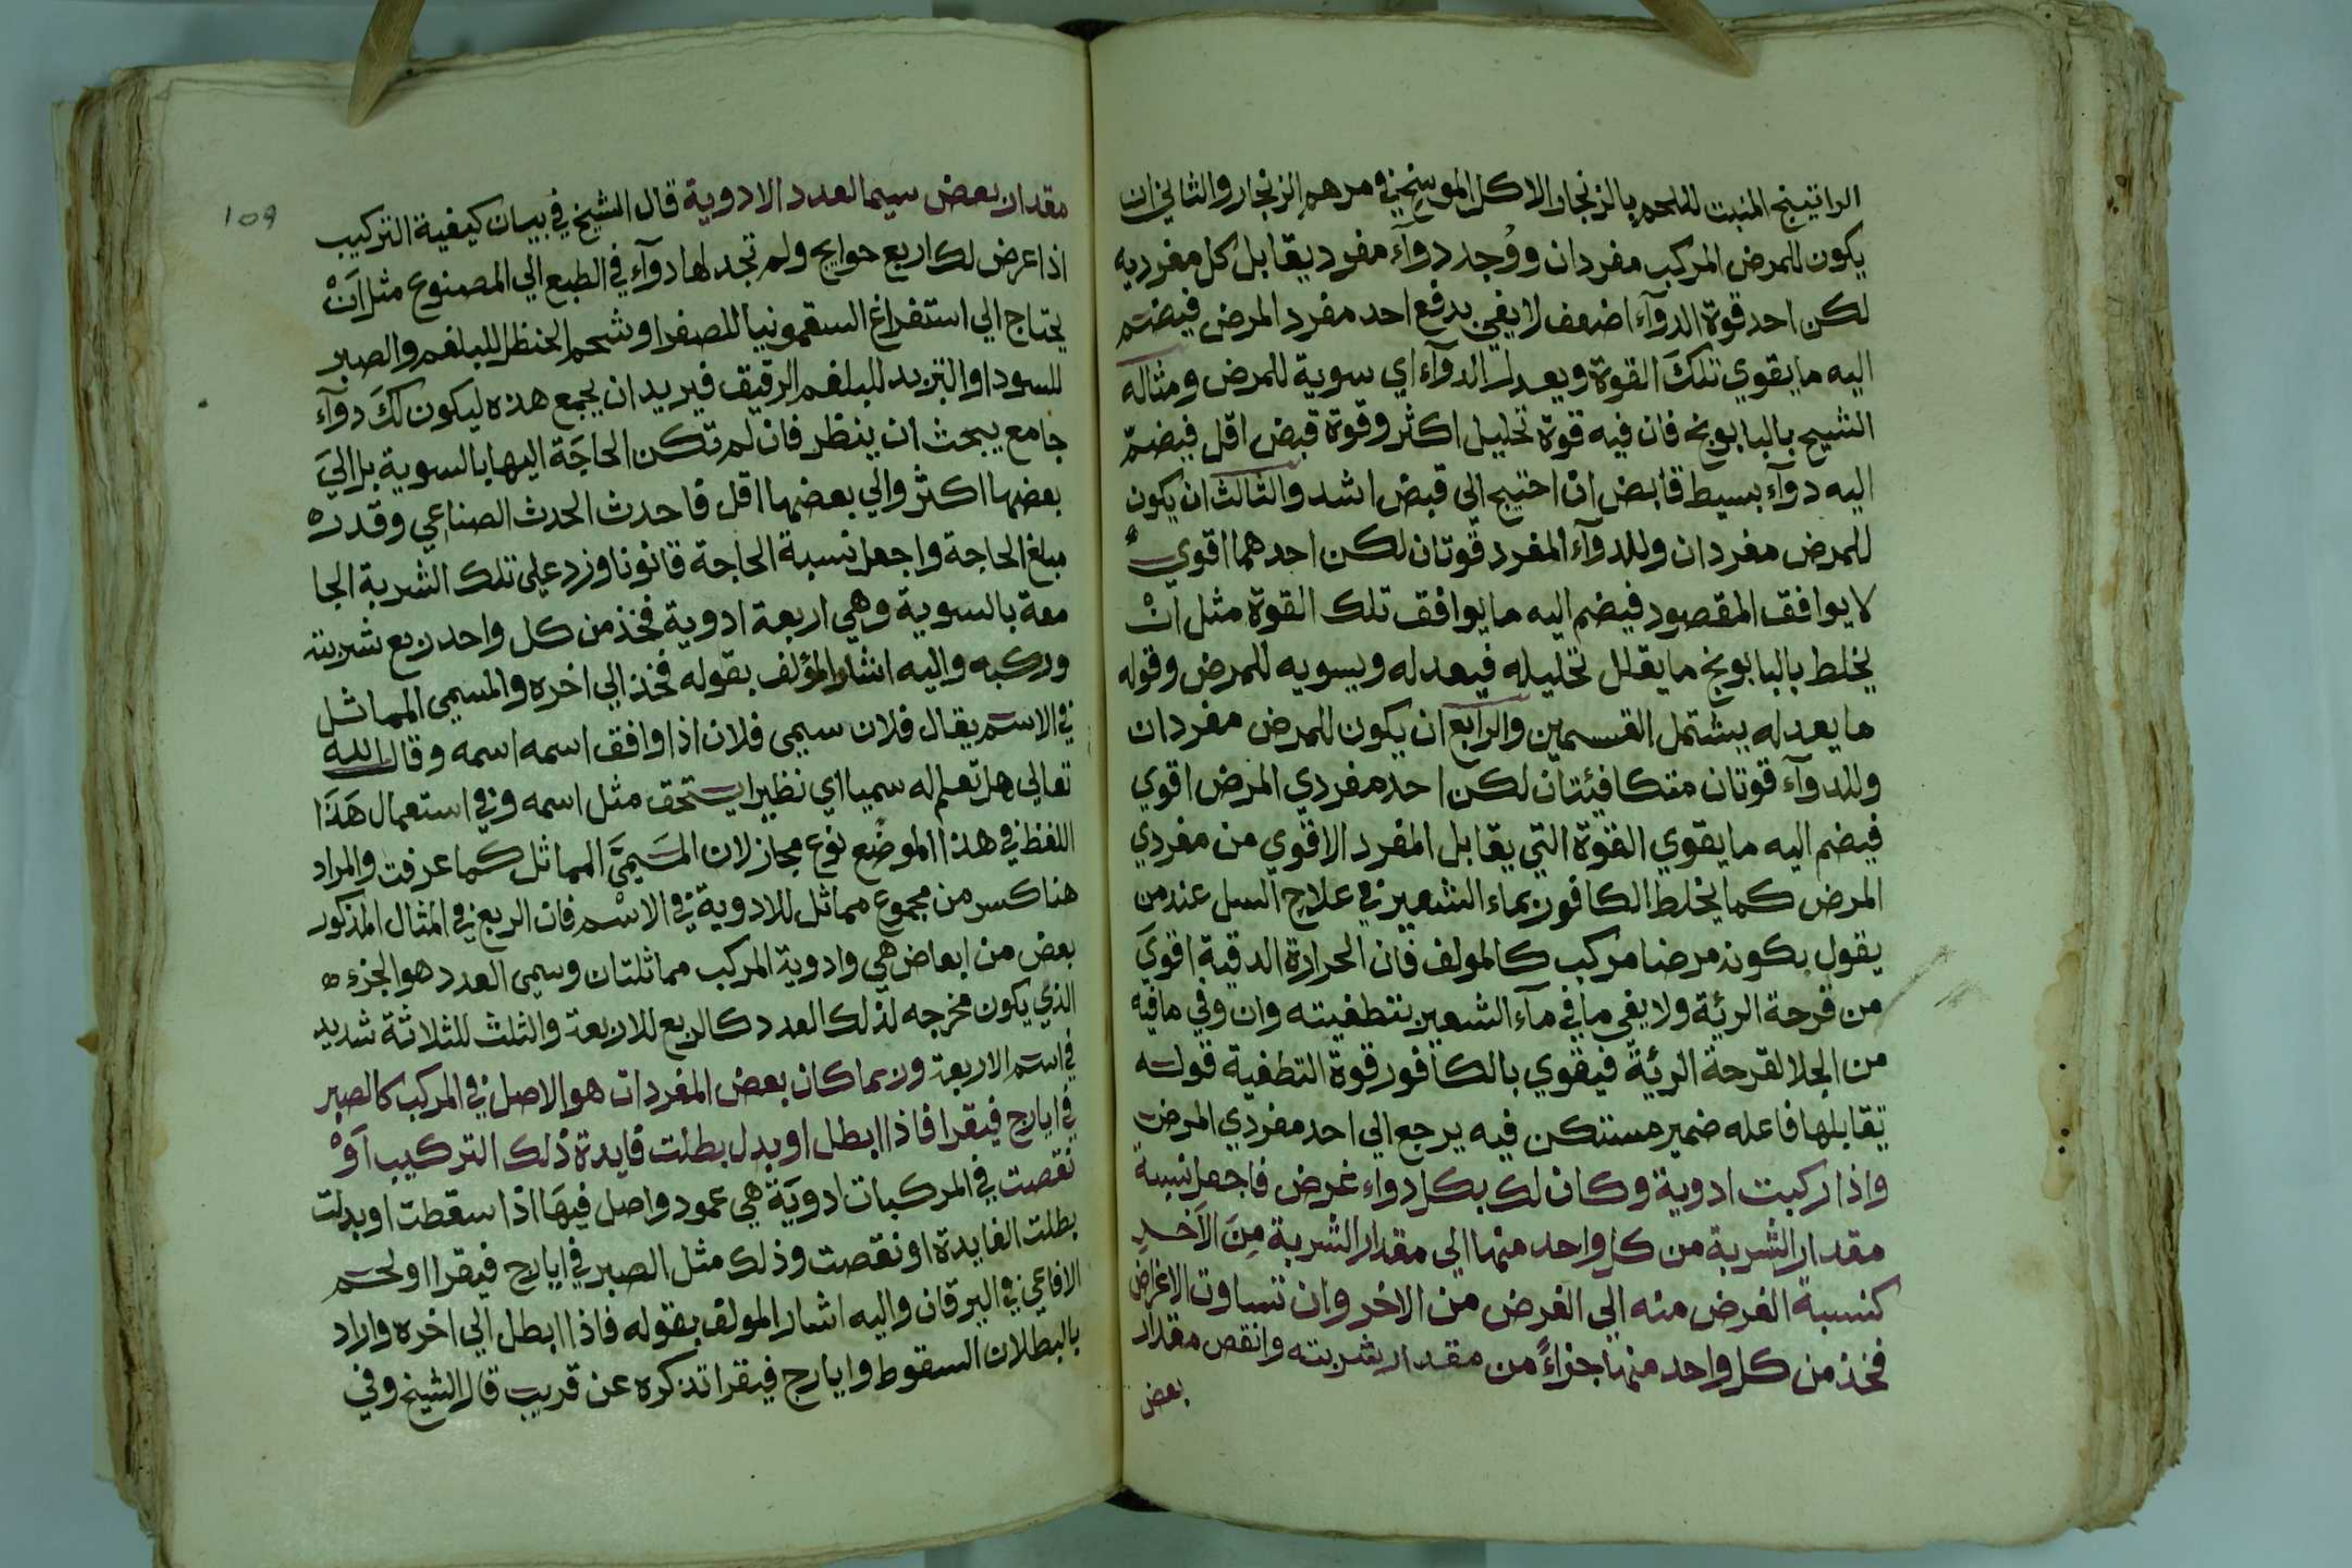 الراتينج المنبت للحم بالزنجار الاكال الموسخ في مرهم الزنجار والثاني ان
يكون للمرض المركب مفردان ووُجد دوآء مفرد يقابل كل مفرديه
لكن احد قوة الدوآء اضعف لا يفي بدفع احد مفرد المرض فيضم
اليه ما يقوي تلكَ القوة ويعدل الدوآء اي سوية للمرض ومثاله
الشيخ بالبابونج فان فيه قوة تحليل اكثر وقوة قبض اقل فيضمّ
اليه دوآء بسيط قابض ان احتيج الي قبض اشد والثالث ان يكون
للمرض مفردان وللدوآء المفرد قوتان لكن احدهما اقوي
لا يوافق المقصود فيضم اليه ما يوافق تلك القوة مثل انْ
يخلط بالبابونج ما يقلل تحليله فيعدله ويسويه للمرض وقوله
ما يعدله يشتمل القسمين والرابع ان يكون للمرض مفردان
وللدوآء قوتان متكافيئتان لكن احد مفردي المرض اقوي
فيضم اليه ما يقوي القوة التي يقابل المفرد الاقوي من مفردي
المرض كما يخلط الكافور بماء الشعير في علاج السل عند من
يقول بكونه مرضا مركب كالمولف فان الحرارة الدقية اقويَ
من قرحة الرئة ولا يفي ما في مآء الشعير بتطفيته وان وفي ما فيه
من الجلا لقرحة الرئة فيقوي بالكافور قوة التطفية قوله
تقابلها فاعله ضمير مستتكن فيه يرجع الي احد مفردي المرض
واذا ركبت ادوية وكان لك بكل دواء غرض فاجعل نسبة
مقدار الشربة من كل واحد منها الي مقدار الشربة مِنَ الآخر
كنسبة الغرض منه الي الغرض من الاخر وان تساوت الاغراض
فخذ من كل واحد منها جزاءً من مقدار شربته وانقص مقدار
بعض
109
مقدار بعض سيما لعدد الادوية قال الشيخ في بيان كيفية التركيب
اذا عرض لك اربع حوايج ولم تجد لها دوآء في الطبع الي المصنوع مثل اَنْ
يحتاج الي استفراغ السقمونيا للصفرا وشحم الحنظل للبلغم والصبر
للسودا والتربد للبلغم الرقيق فيريد ان يجمع هذه ليكون لكَ دوآء
جامع يبحث ان ينظر فان لم تكن الحاجَة اليها بالسوية بل اليَ
بعضها اكثر والي بعضها اقل فاحدث الحدث الصناعي وقدر
مبلغ الحاجة واجعل نسبة الحاجة قانونا وزد علي تلك الشربة الجا
معة بالسوية وهي اربعة ادوية فخذ من كل واحد ربع شربته
وركبه واليه اشار المؤلف بقوله فخذ الي اخره والمسمي المماثل
في الاسم يقال فلان سيمي فلان اذا وافق اسمه اسمه وقال الله
تعالي هل تعلم له سميا اي نظيرا يستحق مثل اسمه وفي استعمال هَذَا
اللفظ في هذا الموضع نوع مجاز لان المسَيمَّي المماثل كما عرفت والمراد
هنا كسر من مجموع مماثل للادوية في الاسْم فان الربع في المثال المذكور
بعض من ابعاض هي وادوية المركب مماثلتان وسمي العدد هو الجزء
الذي يكون مخرجه لذلك العدد كالربع للاربعة والثلث للثلاثة شديد
في اسم الاربعة وربما كان بعض المفردات هو الاصل في المركب كالصبر
في ايارج فيقرا فاذا ابطل او بدل بطلت فايدة ذلك التركيب اَوْ
نقصت في المركبات ادويَة هي عمود واصل فيهَا اذا سقطت او بدلت
بطلت الفايدة او نقصت وذلك مثل الصبر في ايارج فيقرا او لحم
الافاعي في اليرقان واليه اشار المولف بقوله فاذا ابطل الي اخره واراد
بالبطلان السقوط وايارج فيقرا تذكره عن قريب قال الشيخ وفي